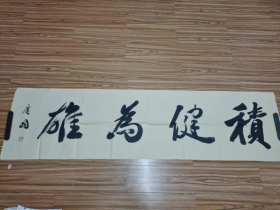 積健為雄